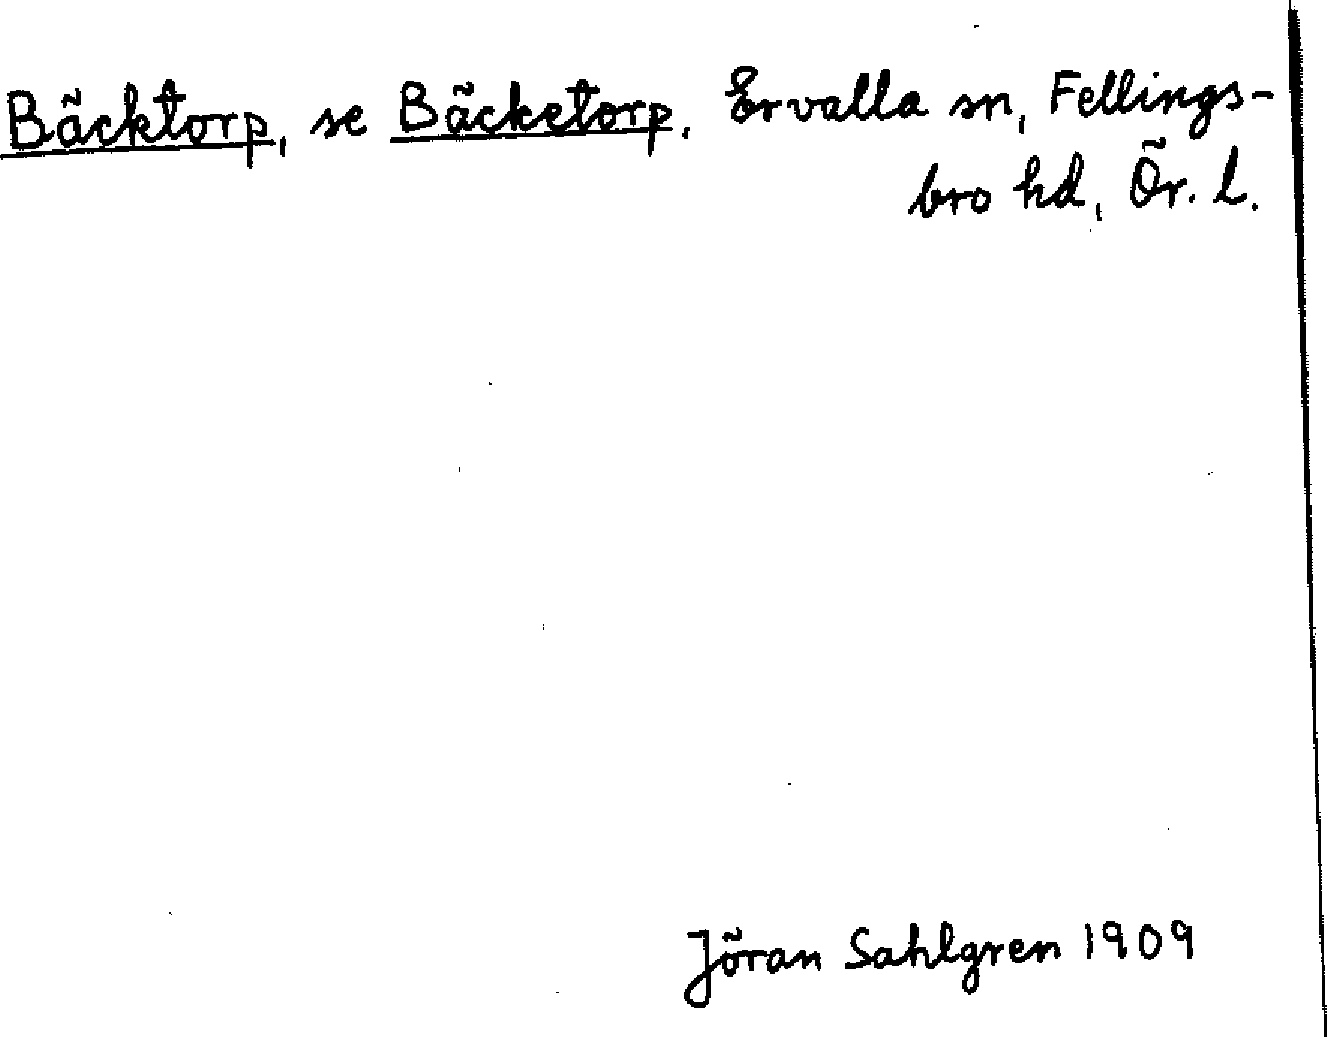 Bäcktorp, se Bäcketorp. Ervalla sn, Fellings-
bro hd, Ör. l.
Jöran Sahlgren 1909